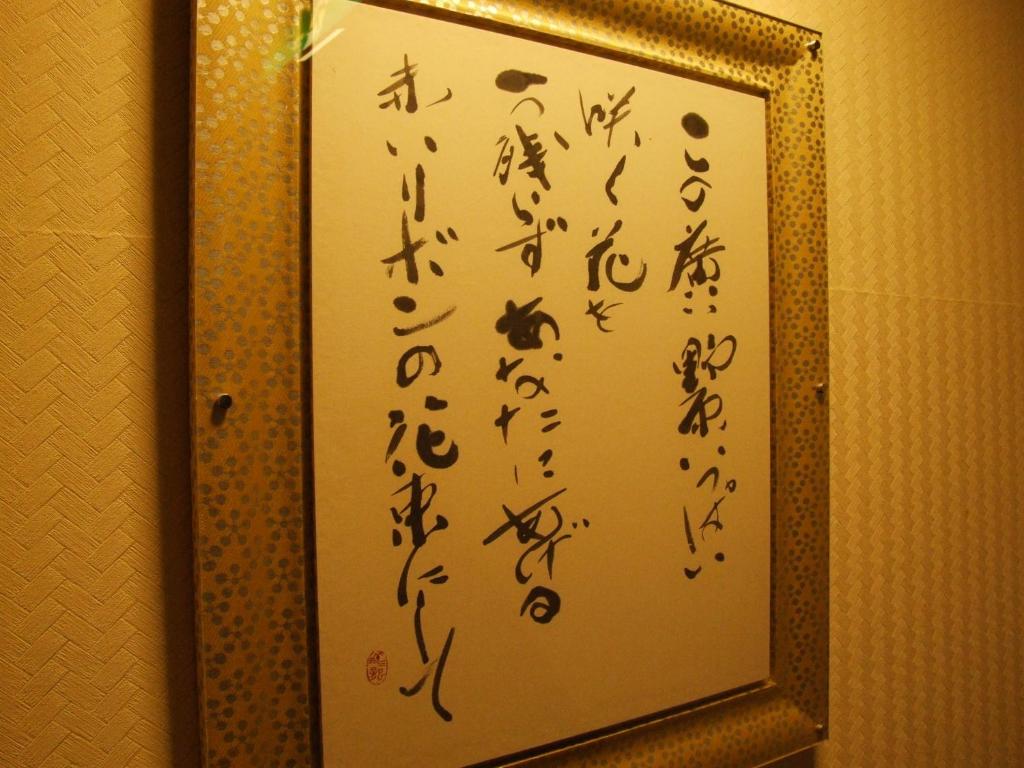 この廣い野原いっぱい
咲く花を
一つ残らずあなたにあげる
赤いリボンの花束にして